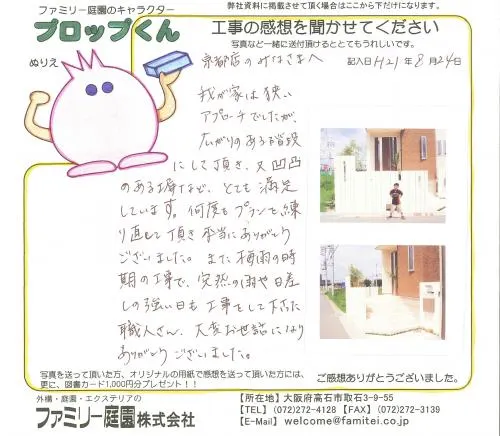 弊社資料に掲載させて頂く場合はここから下だけになります。
ファミリー庭園のキャラクター
プロップくん
ぬりえ
工事の感想を聞かせてください
写真など一緒に送付頂けるととてもうれしいです。
京都店のみなさまへ
記入日 H21 年 8 月 24日
我が家は狭い
アプローチでしたが、
広がりのある階段
にして頂き、又凹凸
のある塀など、とても満足
しています。何度もプランを練
り直して頂き本当にありがとう
ございました。また梅雨の時
期の工事で、突然の雨や日差
しの強い日も工事をして下さった
職人さん、大変お世話になり
ありがとうございました。
写真を送って頂いた方、オリジナルの用紙で感想を送って頂いた方には、
更に、図書カード1,000円分プレゼント!!
ご感想ありがとうございました。
外構・庭園・エクステリアの
ファミリー庭園株式会社
【所在地】大阪府高石市取石3-9-55
【TEL】(072)272-4128 【FAX】(072)272-3139
【E-Mail】 welcome@famitei.co.jp